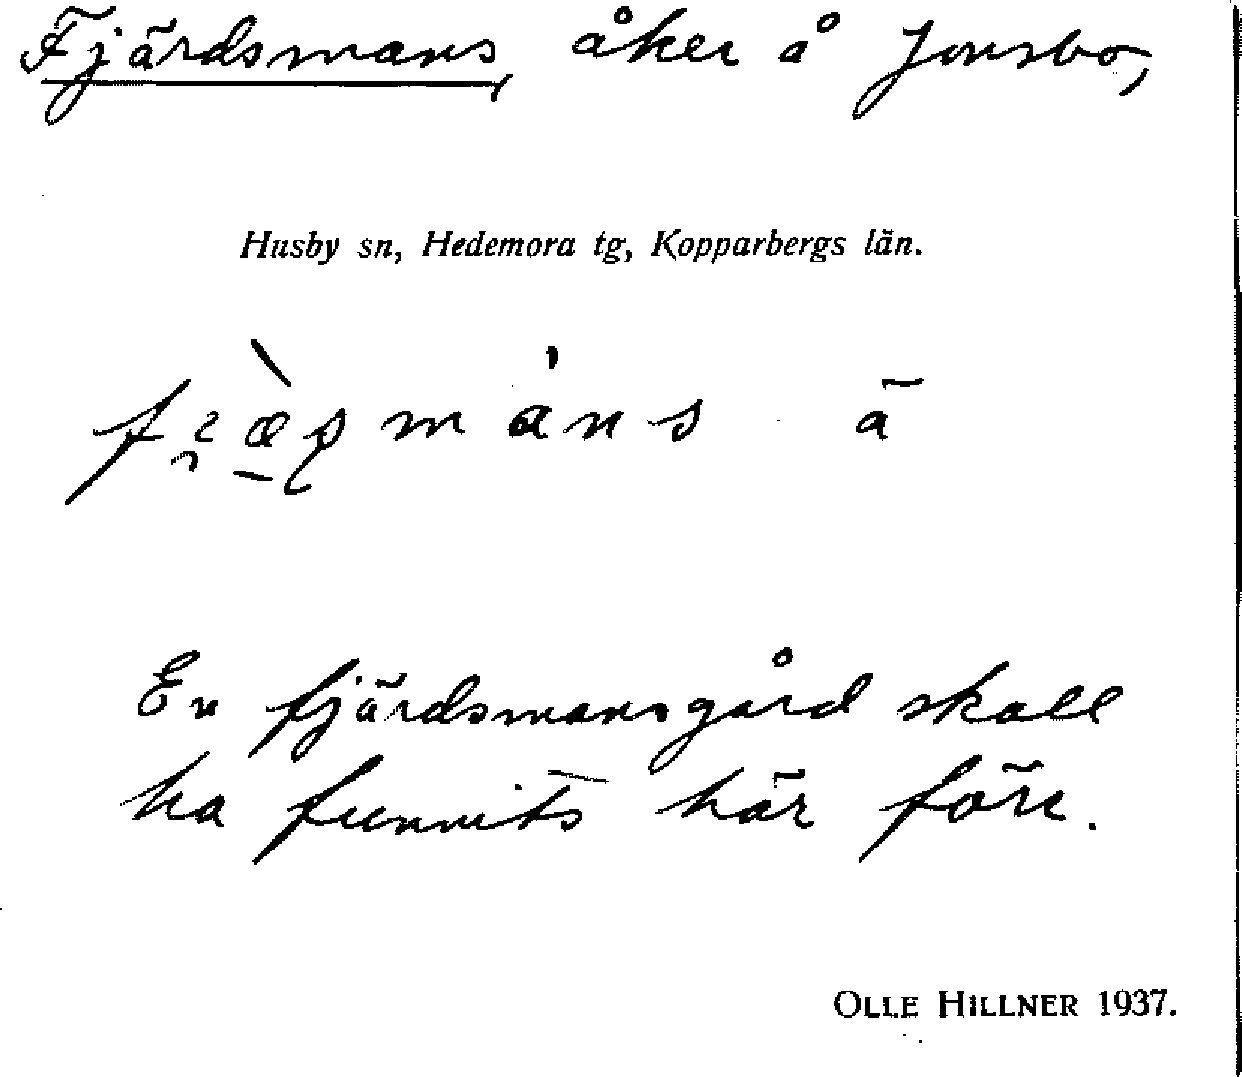 Fjärdsmans, åker å Jonsbo,
Husby sn, Hedemora tg, Kopparbergs län.
En fjärdsmansgård skall
ha funnits här förr.
OLLE HILLNER 1937.